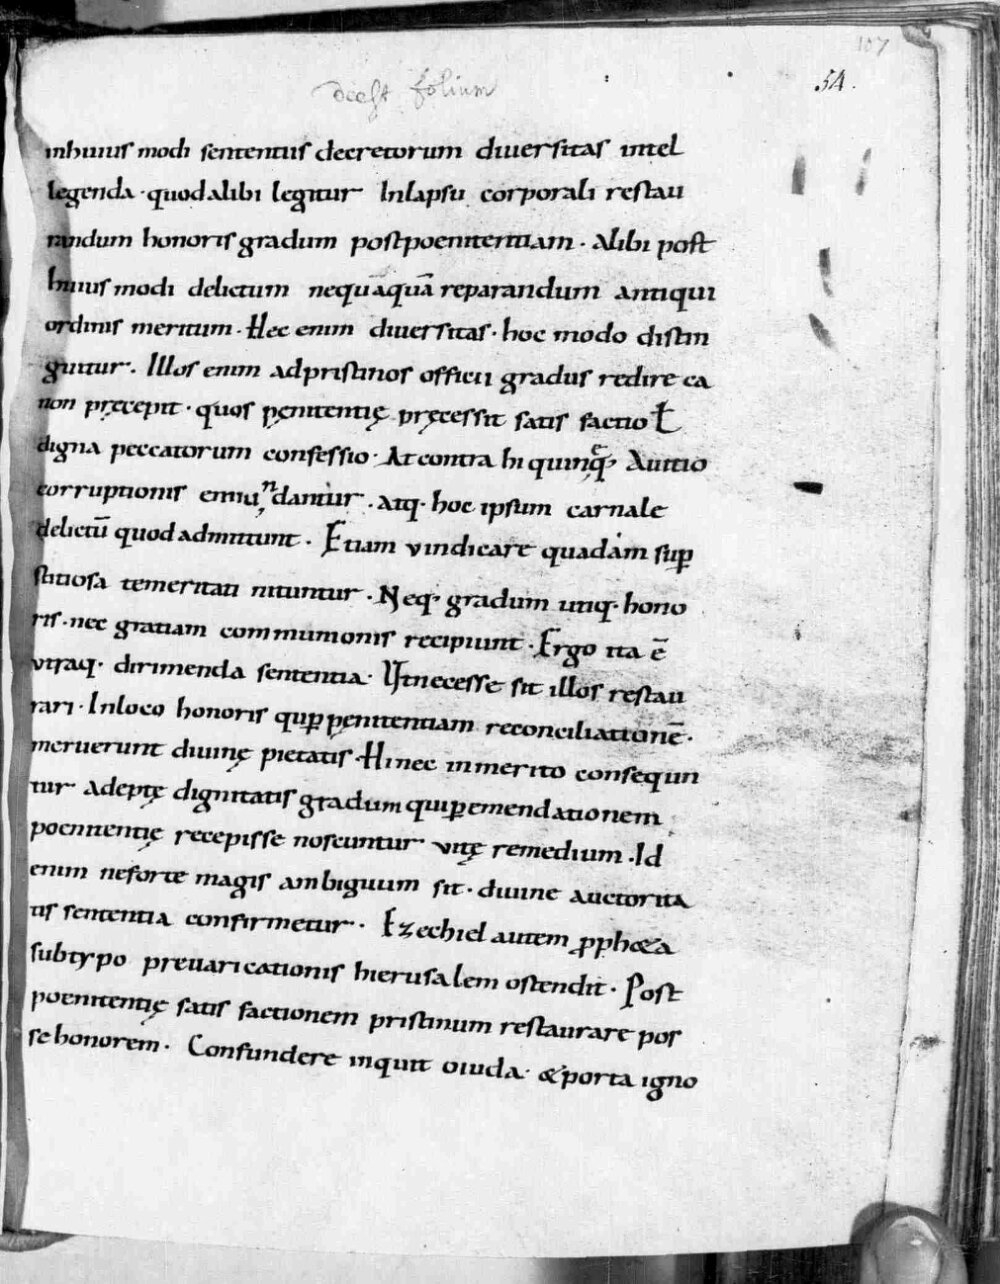 107
deest folium
54.
inhuius modi sententiis decretorum diuersitas intel
legenda · quod alibi legitur Inlapsu corporali restau
randum honoris gradum post poenitentiam · Alibi post
huius modi delictum nequāquā reparandum antiqui
ordinis meritum · Hec enim diuersitas · hoc modo distin
guitur · Illos enim ad pristinos officii gradus redire ca
non pręcepit · quos pęnitentię pręcessit satis factio ł
digna peccatorum confessio · At contra hi qui neq; A uitio
corruptionis emundantur · atq · hoc ipsum carnale
delictū quod admittunt · Etiam vindicare quadam sup
stitiosa temeritati nituntur · Neq · gradum utiq · hono
ris · nec gratiam communionis recipiunt · Ergo ita ē
vtraq · dirimenda sententia · Ut necesse sit illos restau
rari · Inloco honoris qui p pęnitentiam reconciliationē ·
meruerunt diuinę pietatis · Hi nec inmerito consequn
tur adeptę dignitatis gradum qui p emendationem
poenitentię recepisse noscuntur vitę remedium · Id
enim neforte magis ambiguum sit · diuine auctorita
tis sententia confirmetur · Ezechiel autem ppheta
subtypo preuaricationis hierusalem ostendit · Post
poenitentię satis factionem pristinum restaurare pos
se honorem · Confundere inquit oiuda · & porta igno